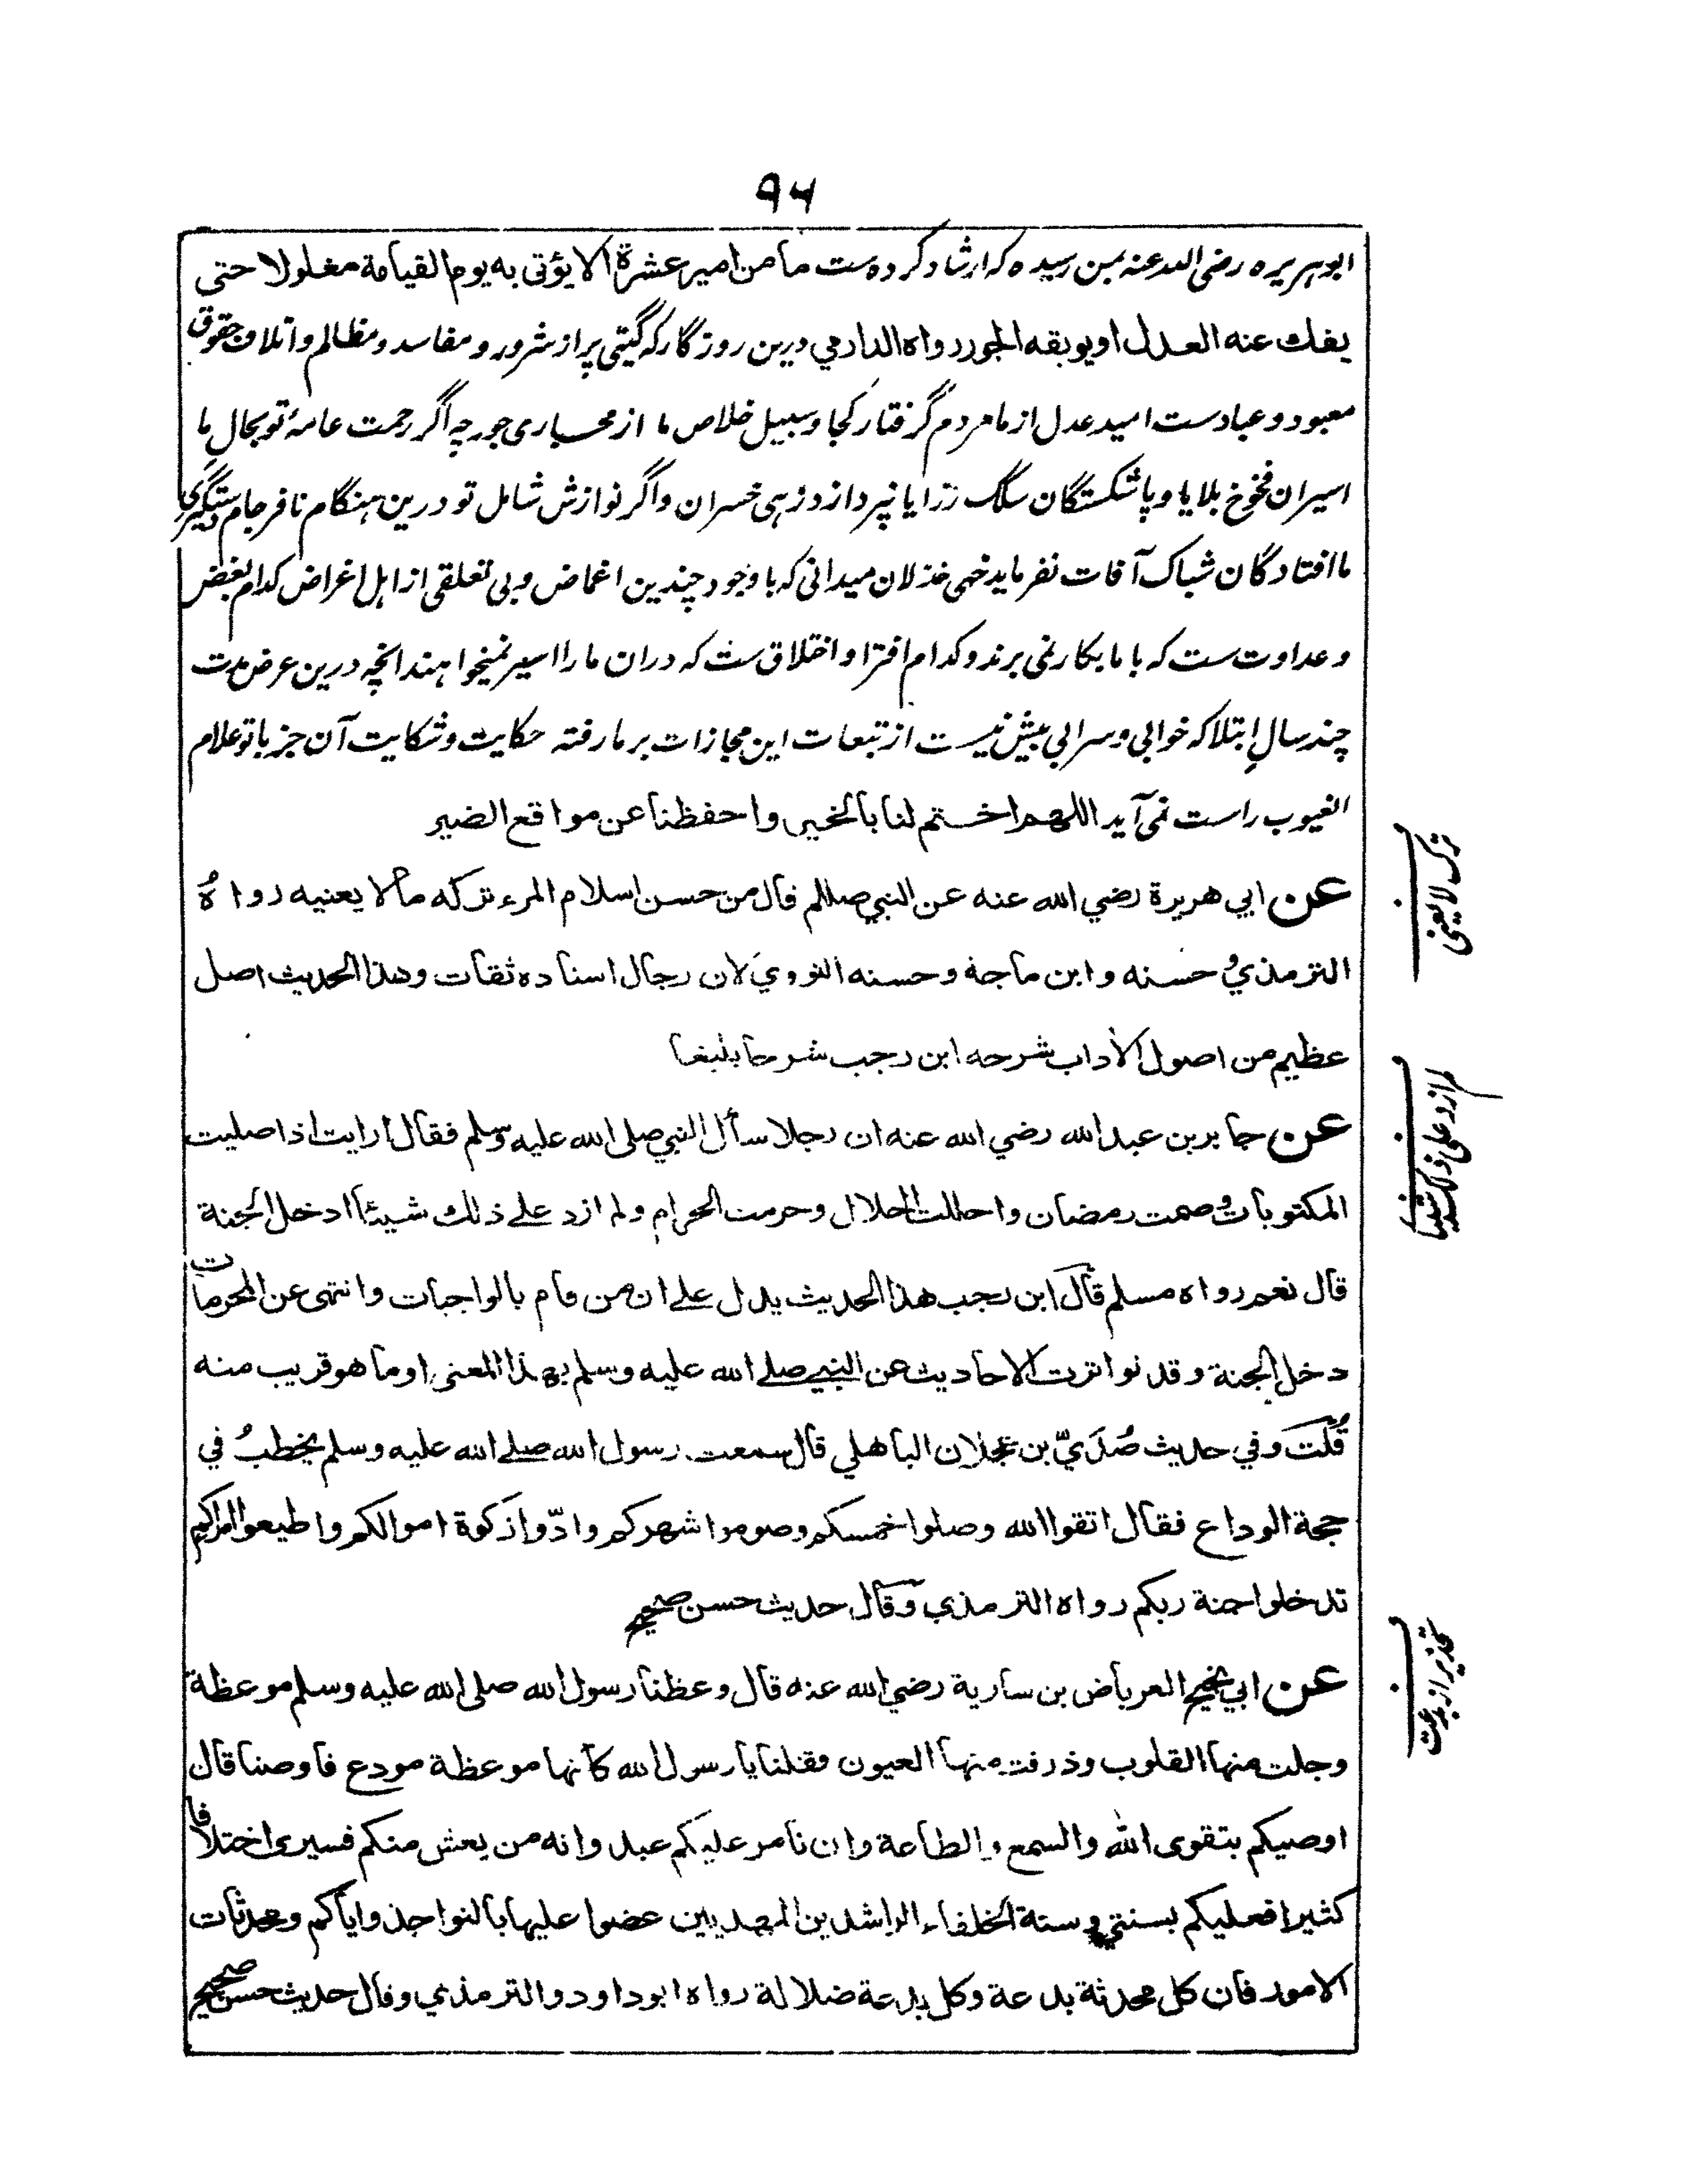 ۹۶
ابوہریرہ رضی اللہ عنہ بمن رسیدہ کہ ارشاد کردہ ست ما من امیر عشرة الا یؤتی به یوم القیامة مغلولا حتی
یفك عنه العدل او یوبقه الجور رواه الدارمي درین روزگار کہ گیتی پر از شرور و مفاسد و مظالم و اتلاف حقوق
معبود و عباد ست امید عدل از ما مردم گرفتار کجا و سبیل خلاص ما از جور چہ اگر رحمت عامۂ تو بحالِ ما
اسیران فخوخ بلایا و پاشکستگان سلگ رزایا نپردازد زہی خسران و اگر نوازش شامل تو درین ہنگام نافرجام دستگیری
ما افتادگان شباک آفات نفرماید خہی خذلان میدانی کہ با وجود چندین اغماض و بی تعلقی از اہل اغراض کدام بغض
و عداوت ست کہ با ما بکار نمی برند و کدام افترا و اختلاق ست کہ دران ما را اسیر نمیخواہند انچہ درین عرض مدت
چند سالِ ابتلا کہ خوابی و سرابی بیش نیست از تبعات این مجازات بر ما رفتہ حکایت و شکایت آن جز با تو علام
الغیوب راست نمی آید اللهم اختم لنا بالخیر واحفظنا عن مواقع الضیر
عن ابي هريرة رضي الله عنه عن النبي صللم قال من حسن اسلام المرء تركه ما لا يعنيه رواهُ
الترمذي و حسنه وابن ماجة وحسنه النووي لان رجال اسناده ثقات وهذا الحديث اصل
عظيم من اصول الاداب شرحه ابن رجب شرحا بليغا
عن جابر بن عبد الله رضي الله عنه ان رجلا سأل النبي صلى الله عليه وسلم فقال ارايت اذا صليت
المكتوبات وصمت رمضان واحللت الحلال وحرمت الحرام ولم ازد على ذلك شيئا ادخل الجنة
قال نعم رواه مسلم قال ابن رجب هذا الحديث يدل على ان من قام بالواجبات وانتهى عن المحرمات
دخل الجنة وقد تواترت الاحاديث عن النبي صلى الله عليه وسلم بهذا المعنى او ما هو قريب منه
قُلت وفي حديث صُدَيّ بن عجلان الباهلي قال سمعت رسول الله صلى الله عليه وسلم يخطبُ في
حجة الوداع فقال اتقوا الله وصلوا خمسكم وصوموا شهركم وادّوا زكوة اموالكم واطيعوا امراءكم
تدخلوا جنة ربكم رواه الترمذي وقال حديث حسن صحيح
عن ابي نجيح العرباض بن سارية رضي الله عنه قال وعظنا رسول الله صلى الله عليه وسلم موعظة
وجلت منها القلوب وذرفت منها العيون فقلنا يا رسول الله كأنها موعظة مودع فاوصنا قال
اوصيكم بتقوى الله والسمع والطاعة وان تامر عليكم عبد وانه من يعش منكم فسيرى اختلافا
كثيرا فعليكم بسنتي وسنة الخلفاء الراشدين المهديين عضوا عليها بالنواجذ واياكم ومحدثات
الامور فان كل محدثة بدعة وكل بدعة ضلالة رواه ابو داود والترمذي وقال حديث حسن صحيح
ترک لا یعنی
تحذیر از بدعت